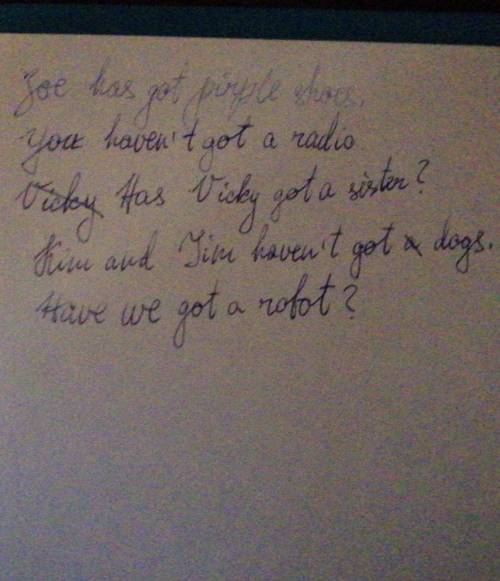 Zoe has got pirple shoes.
You haven't got a radio
Has Vicky got a sister?
Kim and Jim haven't got dogs.
Have we got a robot?